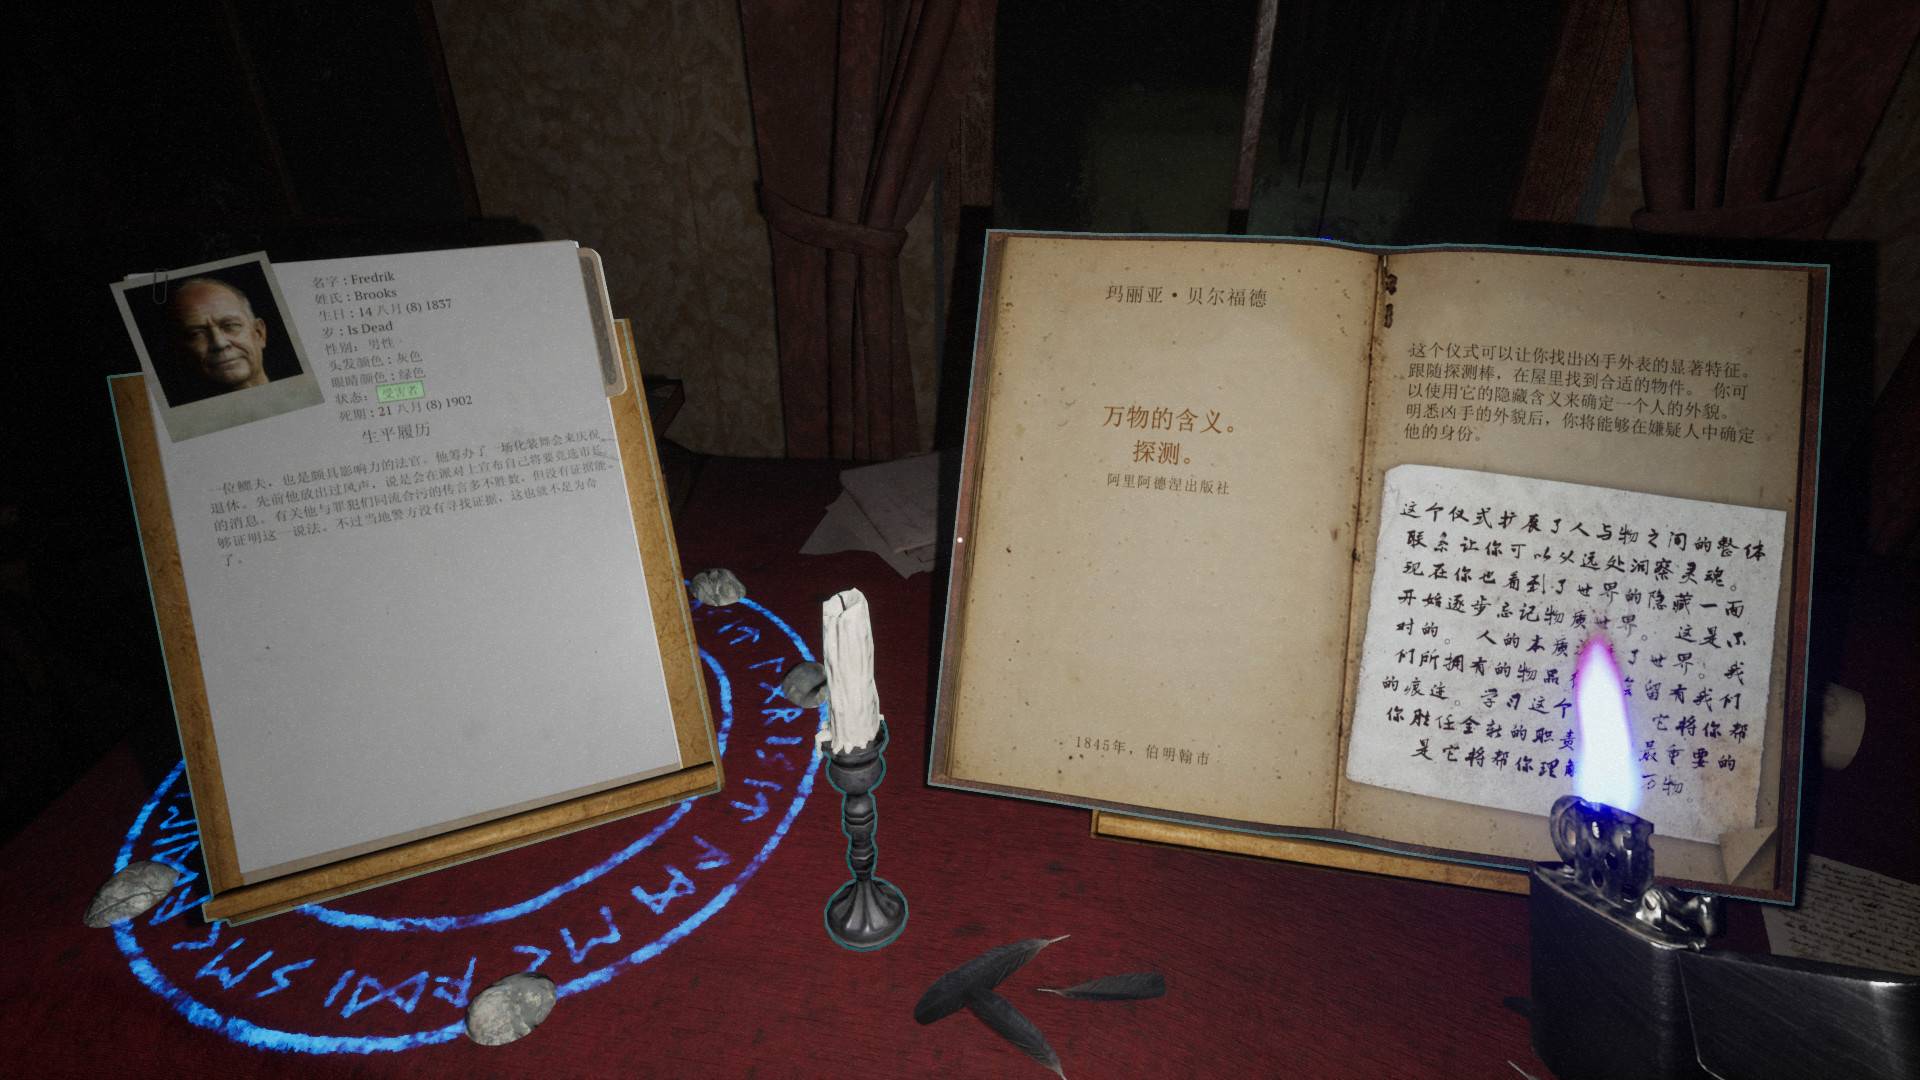 名字：Fredrik
姓氏：Brooks
生日：14 八月 (8) 1837
岁：Is Dead
性别：男性
头发颜色：灰色
眼睛颜色：绿色
状态：受害者
死期：21 八月 (8) 1902
生平履历
一位鳏夫，也是颇具影响力的法官。他筹办了一场化装舞会来庆祝
退休。先前他放出过风声，说是会在派对上宣布自己将要竞选市长
的消息。有关他与罪犯们同流合污的传言多不胜数，但没有证据能
够证明这一说法。不过当地警方没有寻找证据，这也就不足为奇
了。
玛丽亚·贝尔福德
万物的含义。
探测。
阿里阿德涅出版社
1845年，伯明翰市
这个仪式可以让你找出凶手外表的显著特征。
跟随探测棒，在屋里找到合适的物件。 你可
以使用它的隐藏含义来确定一个人的外貌。
明悉凶手的外貌后，你将能够在嫌疑人中确定
他的身份。
这个仪式扩展了人与物之间的整体
联系让你可以从远处洞察灵魂。
现在你也看到了世界的隐藏一面
开始逐步忘记物质世界。 这是不
对的。 人的本质 了世界！ 我
们所拥有的物品 留有我们
的痕迹。 学习这个 它将你帮
你胜任全新的职责 最重要的
是它将帮你理 万物。